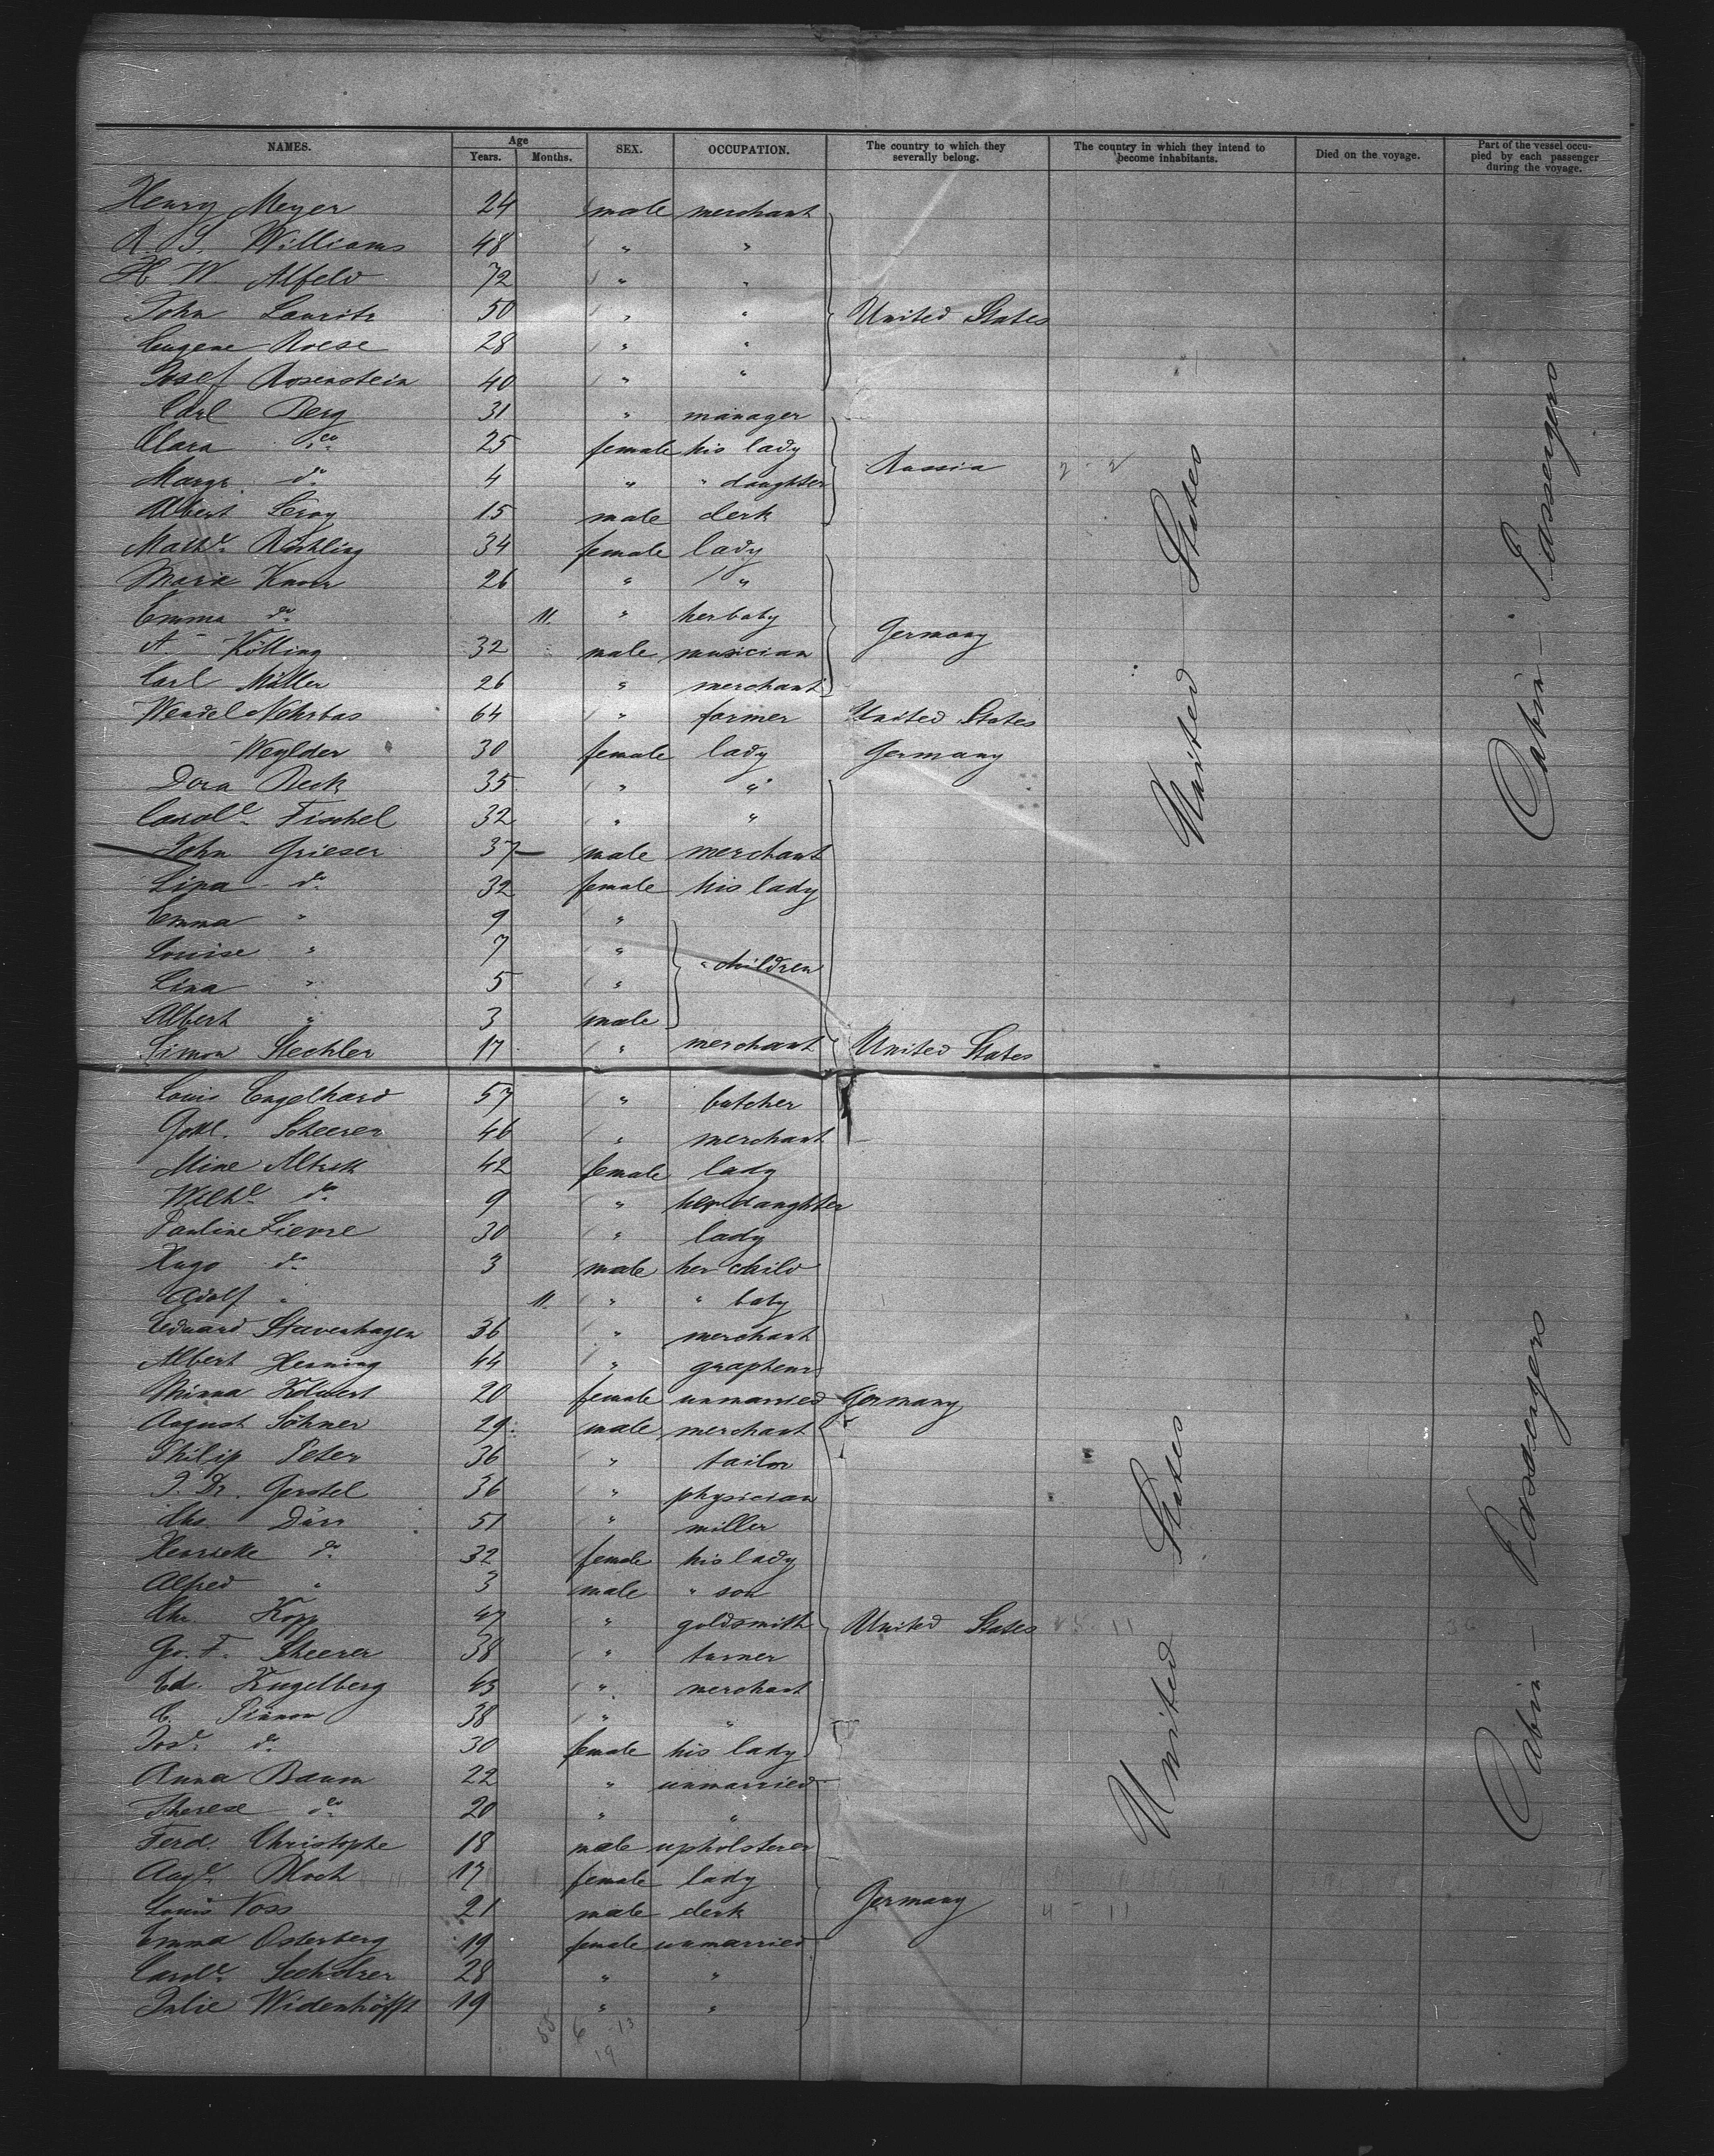 NAMES. Age Years. Months. SEX. OCCUPATION. The country to which they severally belong. The country in which they intend to become inhabitants. Died on the voyage. Part of the vessel occupied by each passenger during the voyage.
Henry Meyer 24 male merchant
A. S. Williams 48 " "
H W. Alfeld 72 " "
John Lauritz 50 " " United States
Eugene Roese 28 " "
Josef Rosenstein 40 " "
Carl Berg 31 " manager
Clara do 25 female his lady
Margr. do 4 " " daughter Russia
Albert Leroy 15 male clerk
Mathe. Röchling 34 female lady
Maria Knorr 26 " "
Emma do 11. " her baby
A. Kölling 32 male musician Germany
Carl Müller 26 " merchant
Wendel Nehrbas 64 " farmer United States
Weylder 30 female lady Germany
Dora Beck 35 " "
Carole. Fischel 32 " "
John Grieser 37 male merchant
Lina do 32 female his lady
Emma " 9 "
Louise " 7 " " children
Lina " 5 "
Albert " 3 male
Simon Stechler 17 " merchant United States
Louis Engelhard 57 " butcher
Gottl. Scheerer 46 " merchant
Mine 42 female lady
Wilhe. do 9 " her daughter
Pauline Lievre 30 " lady
Hugo do 3 male her child
Adolf " 11. " " baby
Eduard Stavenhagen 36 " merchant
Albert Henning 44 "
Minna 20 female unmarried Germany
August Söhner 29 male merchant
Philip Peter 36 " tailor
J. Dr. Gerstel 36 " physician
Chs. Dürr 51 " miller
Henriette do 32 female his lady
Alfred " 3 male " son
Chr. Kopp 47 " goldsmith United States
Geo. F. Scheerer 38 " turner
Ed. Kugelberg 43 " merchant
C. 38 " "
Jose. do 30 female his lady
Anna Baum 22 " unmarried
Therese do 20 " "
Ferd. Christophe 18 male upholsterer
Auge. Bloch 17 female lady
Louis Voss 21 male clerk Germany
Emma Osterberg 19 female unmarried
Carole. 28 " "
Julie Widenhöfft 19 " "
United States
Cabin - Passengers
United States
Cabin - Passengers